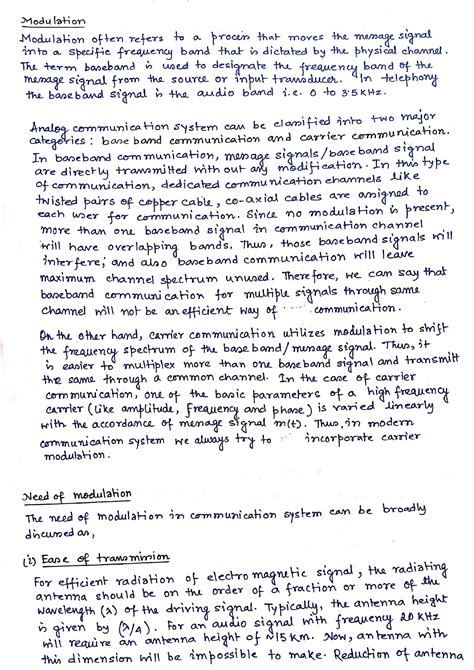 Modulation
Modulation often refers to a process that moves the message signal
into a specific frequency band that is dictated by the physical channel.
The term baseband is used to designate the frequency band of the
message signal from the source or input transducer. In telephony
the baseband signal is the audio band i.e. 0 to 3.5 KHz.
Analog communication system can be classified into two major
categories: base band communication and carrier communication.
In baseband communication, message signals/baseband signal
are directly transmitted with out any modification. In this type
of communication, dedicated communication channels like
twisted pairs of copper cable, co-axial cables are assigned to
each user for communication. Since no modulation is present,
more than one baseband signal in communication channel
will have overlapping bands. Thus, those baseband signals will
interfere, and also baseband communication will leave
maximum channel spectrum unused. Therefore, we can say that
baseband communication for multiple signals through same
channel will not be an efficient way of communication.
On the other hand, carrier communication utilizes modulation to shift
the frequency spectrum of the base band/message signal. Thus, it
is easier to multiplex more than one baseband signal and transmitt
the same through a common channel. In the case of carrier
communication, one of the basic parameters of a high frequency
carrier (like amplitude, frequency and phase) is varied linearly
with the accordance of message signal m(t). Thus, in modern
communication system we always try to incorporate carrier
modulation.
Need of modulation
The need of modulation in communication system can be broadly
discussed as,
(i) Ease of transmission
For efficient radiation of electromagnetic signal, the radiating
antenna should be on the order of a fraction or more of the
wavelength (λ) of the driving signal. Typically, the antenna height
is given by (λ/4). For an audio signal with frequency 20 KHz
will require an antenna height of ~15 Km. Now, antenna with
this dimension will be impossible to make. Reduction of antenna